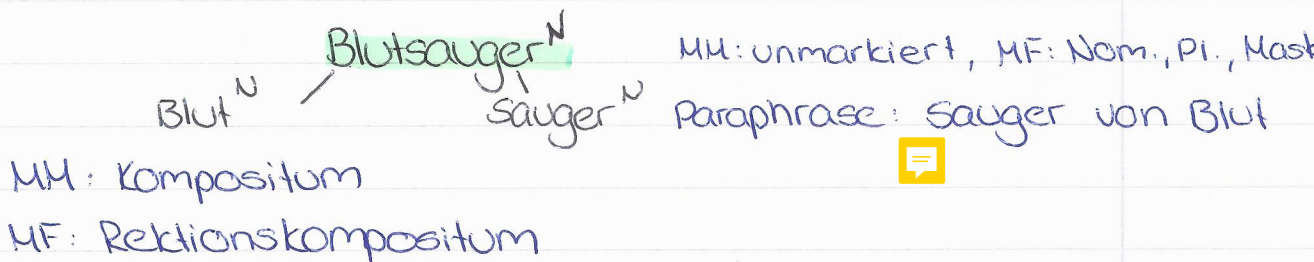 Blutsauger N MM: unmarkiert, MF: Nom., Pl., Mask
Blut N Sauger N Paraphrase: Sauger von Blut
MM: Kompositum
MF: Rektionskompositum